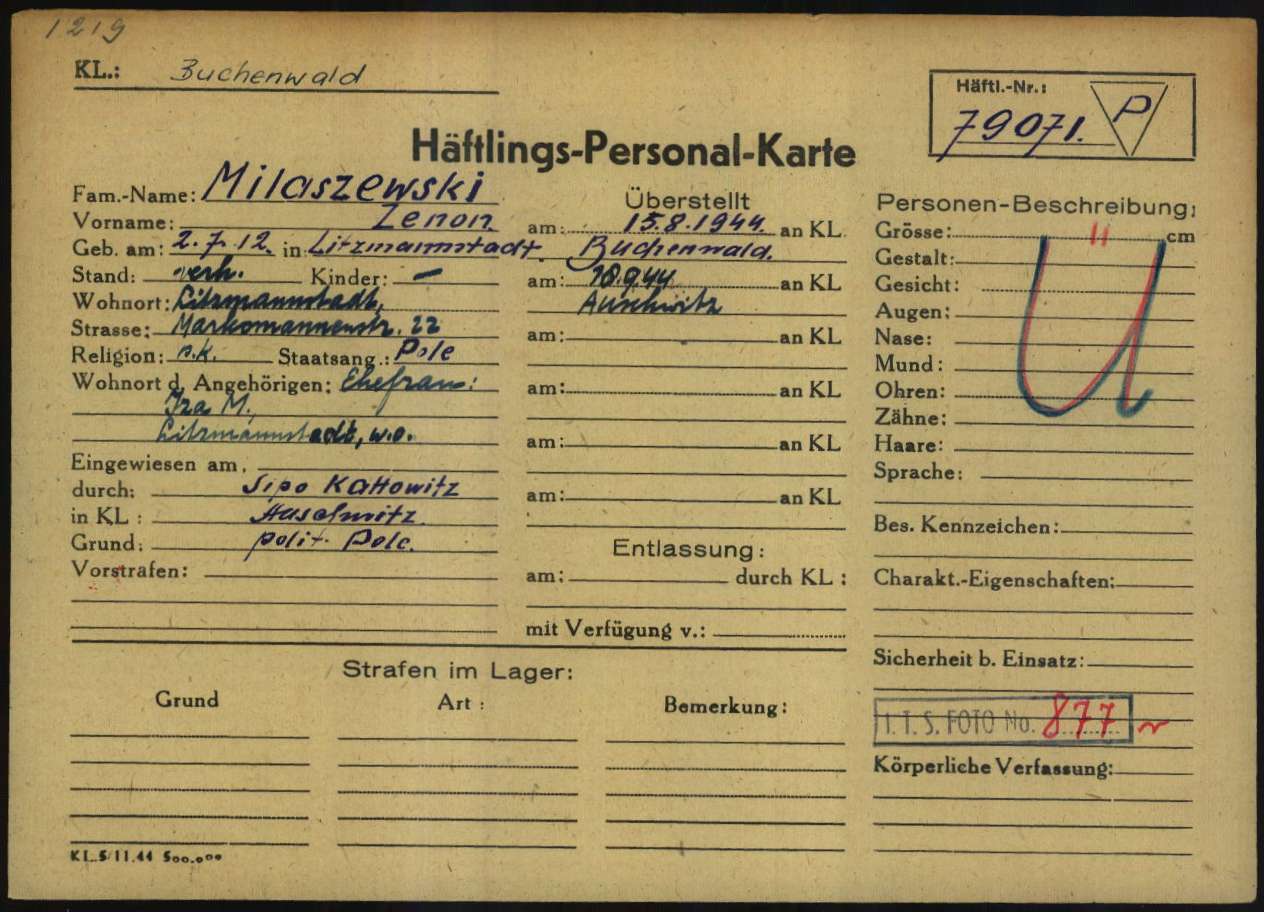 1219
KL.: Buchenwald
Häftl.-Nr.:
79071. P
Häftlings-Personal-Karte
Fam.-Name: Milaszewski
Vorname: Zenon
Geb. am: 2.7.12. in Litzmannstadt.
Stand: verh. Kinder: —
Wohnort: Litzmannstadt,
Strasse: Markomannenstr. 22
Religion: r.k. Staatsang.: Pole
Wohnort d. Angehörigen: Ehefrau:
Iza M.
Litzmannstadt, w.o.
Eingewiesen am,
durch: Sipo Kattowitz
in KL : Auschwitz
Grund: polit. Pole.
Vorstrafen:
Überstellt
am: 15.8.1944. an KL
Buchenwald.
am: 10.9.44 an KL
Auschwitz
am: an KL
am: an KL
am: an KL
am: an KL
Entlassung:
am: durch KL :
mit Verfügung v.:
Personen-Beschreibung:
Grösse: " cm
Gestalt:
Gesicht :
Augen:
Nase:
Mund:
Ohren:
Zähne:
Haare:
Sprache:
Ü
Bes. Kennzeichen:
Charakt.-Eigenschaften:
Sicherheit b. Einsatz:
I. T. S. FOTO No. 877
Körperliche Verfassung:
Strafen im Lager:
Grund Art : Bemerkung:
KL 5/11.44 500.000